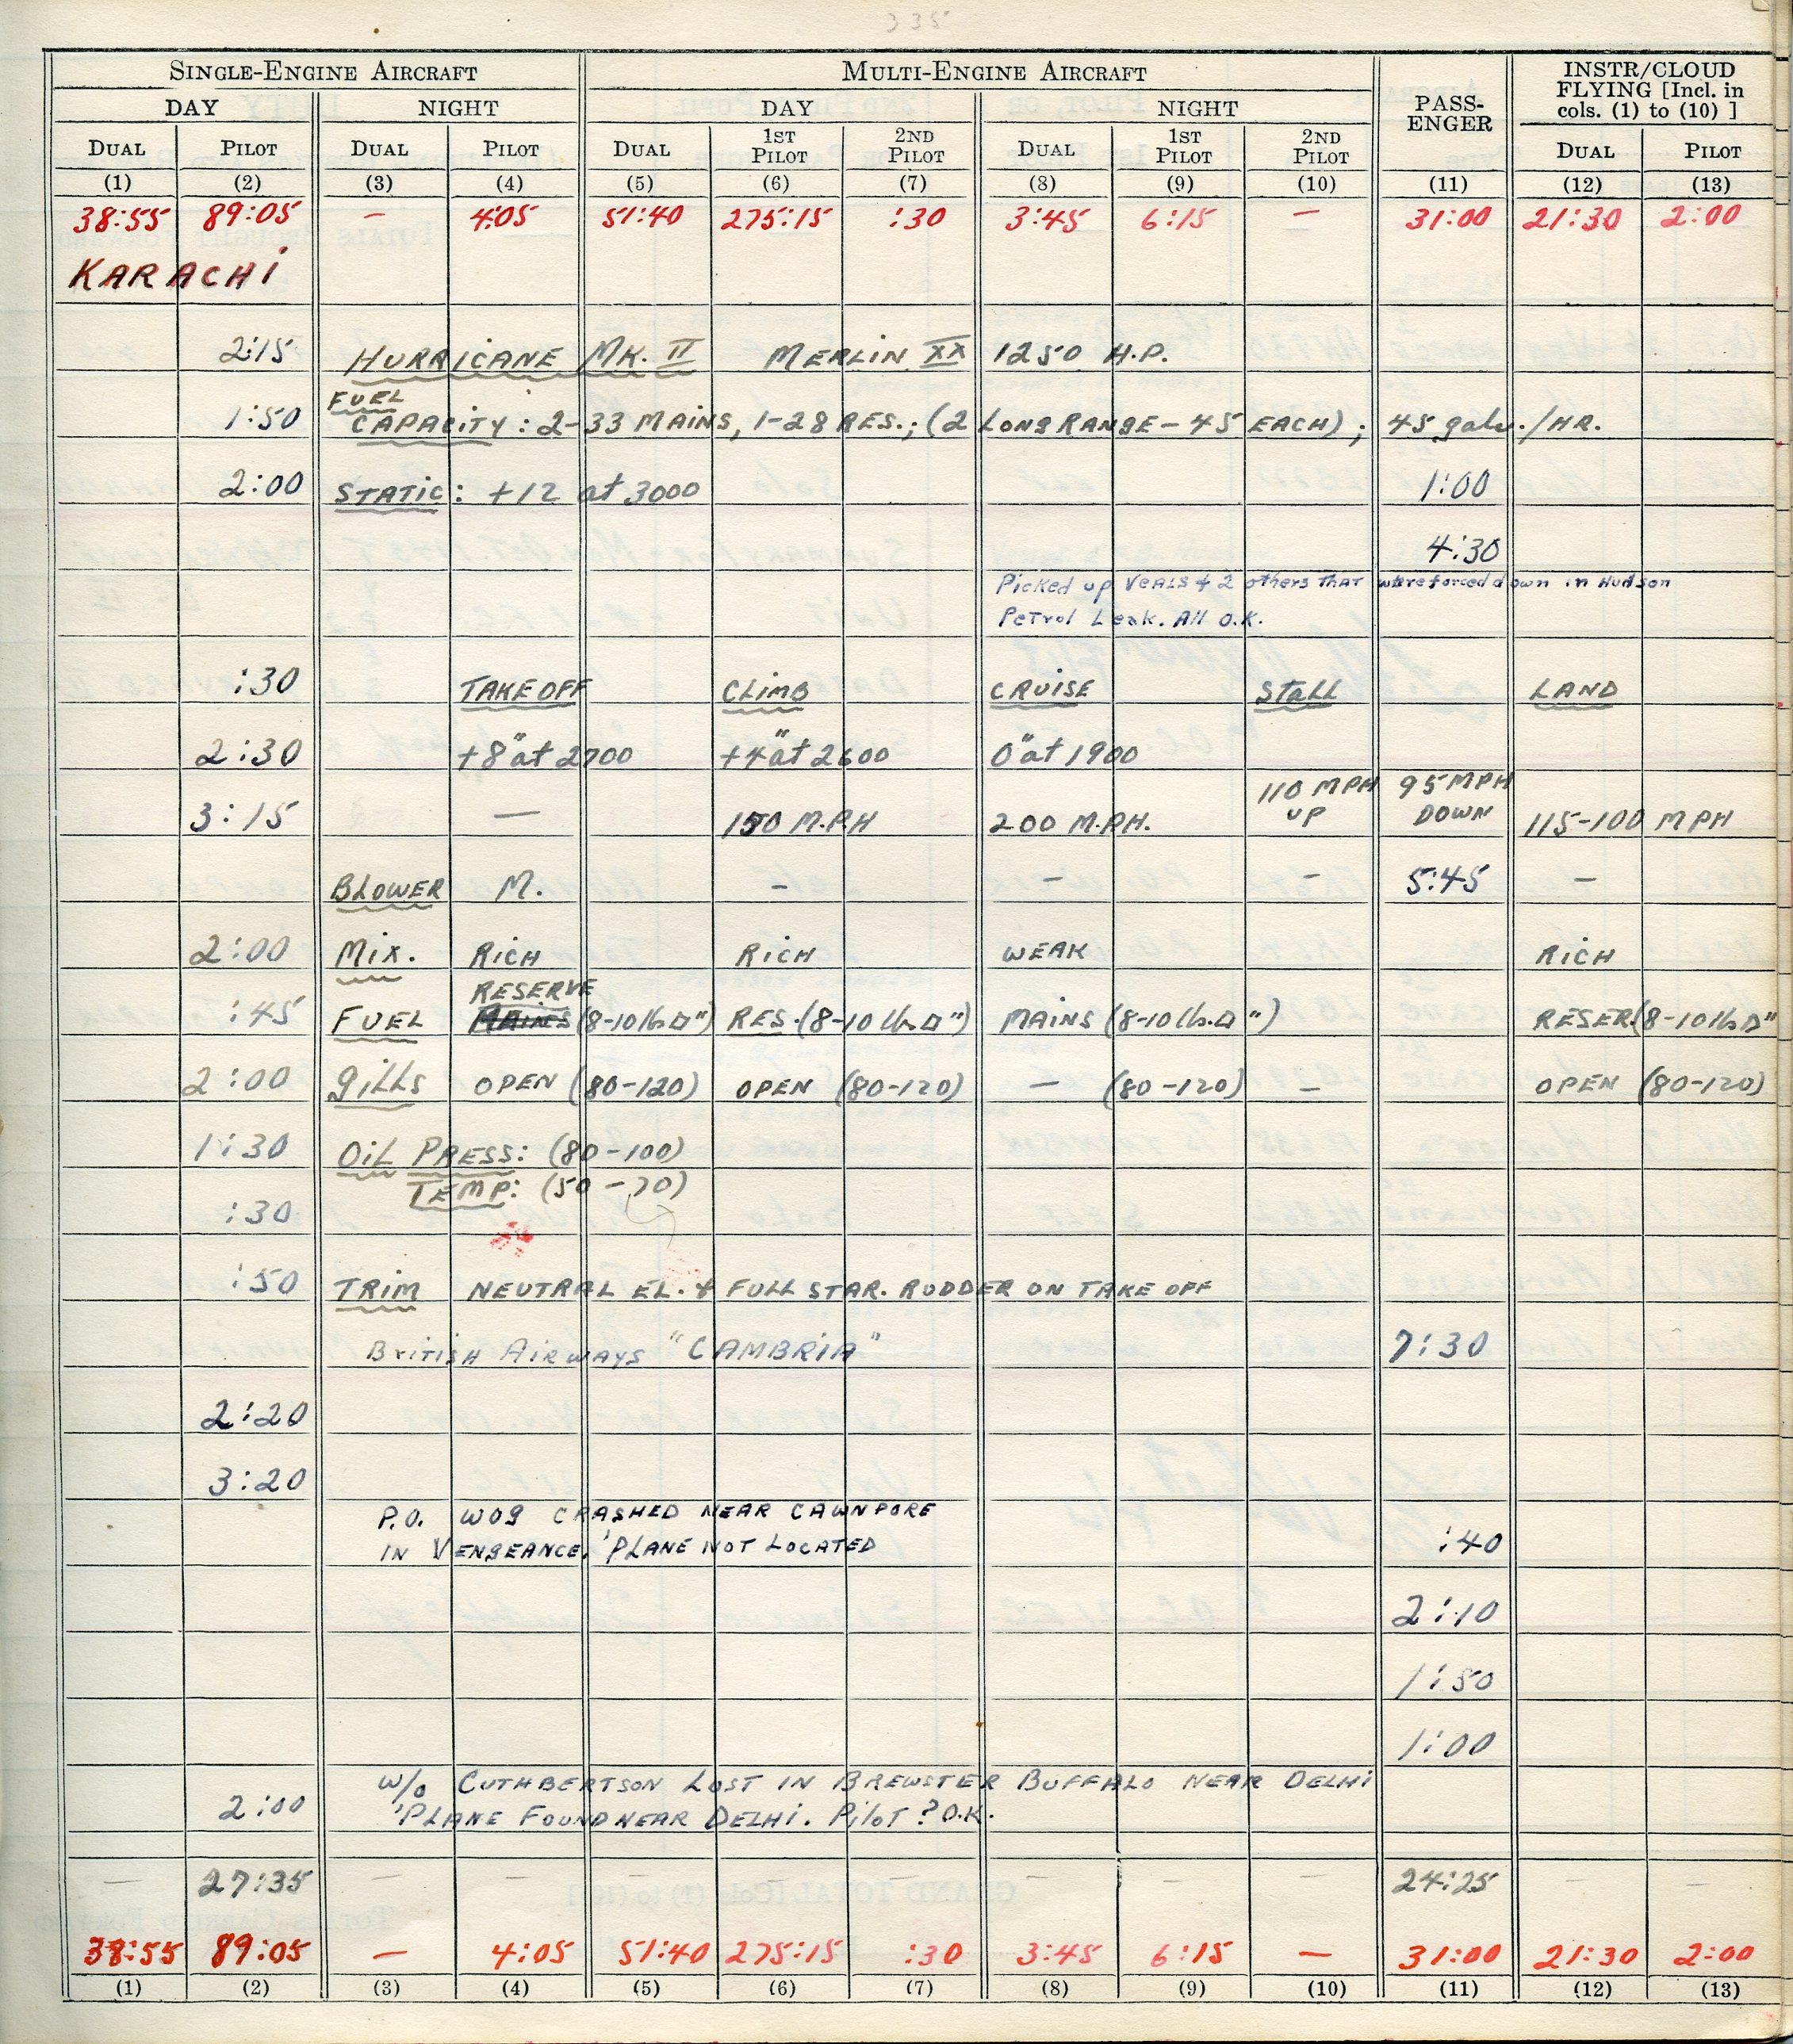 335
SINGLE-ENGINE AIRCRAFT MULTI-ENGINE AIRCRAFT PASS-ENGER INSTR/CLOUD FLYING [Incl. in cols. (1) to (10) ]
DAY NIGHT DAY NIGHT
DUAL PILOT DUAL PILOT DUAL 1ST PILOT 2ND PILOT DUAL 1ST PILOT 2ND PILOT DUAL PILOT
(1) (2) (3) (4) (5) (6) (7) (8) (9) (10) (11) (12) (13)
38:55 89:05 — 4:05 51:40 275:15 :30 3:45 6:15 — 31:00 21:30 2:00
KARACHi
2:15 HURRICANE MK. II MERLIN XX 1250 H.P.
1:50 FUEL CAPACITY: 2-33 MAINS, 1-28 RES.; (2 LONG RANGE - 45 EACH); 45 gals./HR.
2:00 STATIC: +12 at 3000 1:00
4:30
Picked up VEALS & 2 others THAT were forced down in Hudson
Petrol Leak. All O.K.
:30 TAKE OFF CLIMB CRUISE STALL LAND
2:30 +8" at 2700 +4" at 2600 0" at 1900
3:15 — 150 M.P.H 200 M.P.H. 110 MPH UP 95 MPH DOWN 115-100 MPH
BLOWER M. - - - 5:45 -
2:00 MIX. RICH RICH WEAK RICH
RESERVE
:45 FUEL MAINS (8-10 lb □") RES. (8-10 lb □") MAINS (8-10 lb. □") RESER. (8-10 lb □"
2:00 gills OPEN (80-120) OPEN (80-120) — (80-120) — OPEN (80-120)
1:30 OIL PRESS: (80-100)
:30 TEMP: (50-70)
:50 TRIM NEUTRAL EL. & FULL STAR. RUDDER ON TAKE OFF
BRITISH AIRWAYS "CAMBRIA" 7:30
2:20
3:20
P.O. WOG CRASHED NEAR CAWNPORE
IN VENGEANCE. 'PLANE NOT LOCATED :40
2:10
1:50
1:00
W/O CUTHBERTSON LOST IN BREWSTER BUFFALO NEAR DELHI
2:00 'PLANE FOUND NEAR DELHI. PILOT ? O.K.
— 27:35 — — — — — — — — 24:25 — —
38:55 89:05 — 4:05 51:40 275:15 :30 3:45 6:15 — 31:00 21:30 2:00
(1) (2) (3) (4) (5) (6) (7) (8) (9) (10) (11) (12) (13)